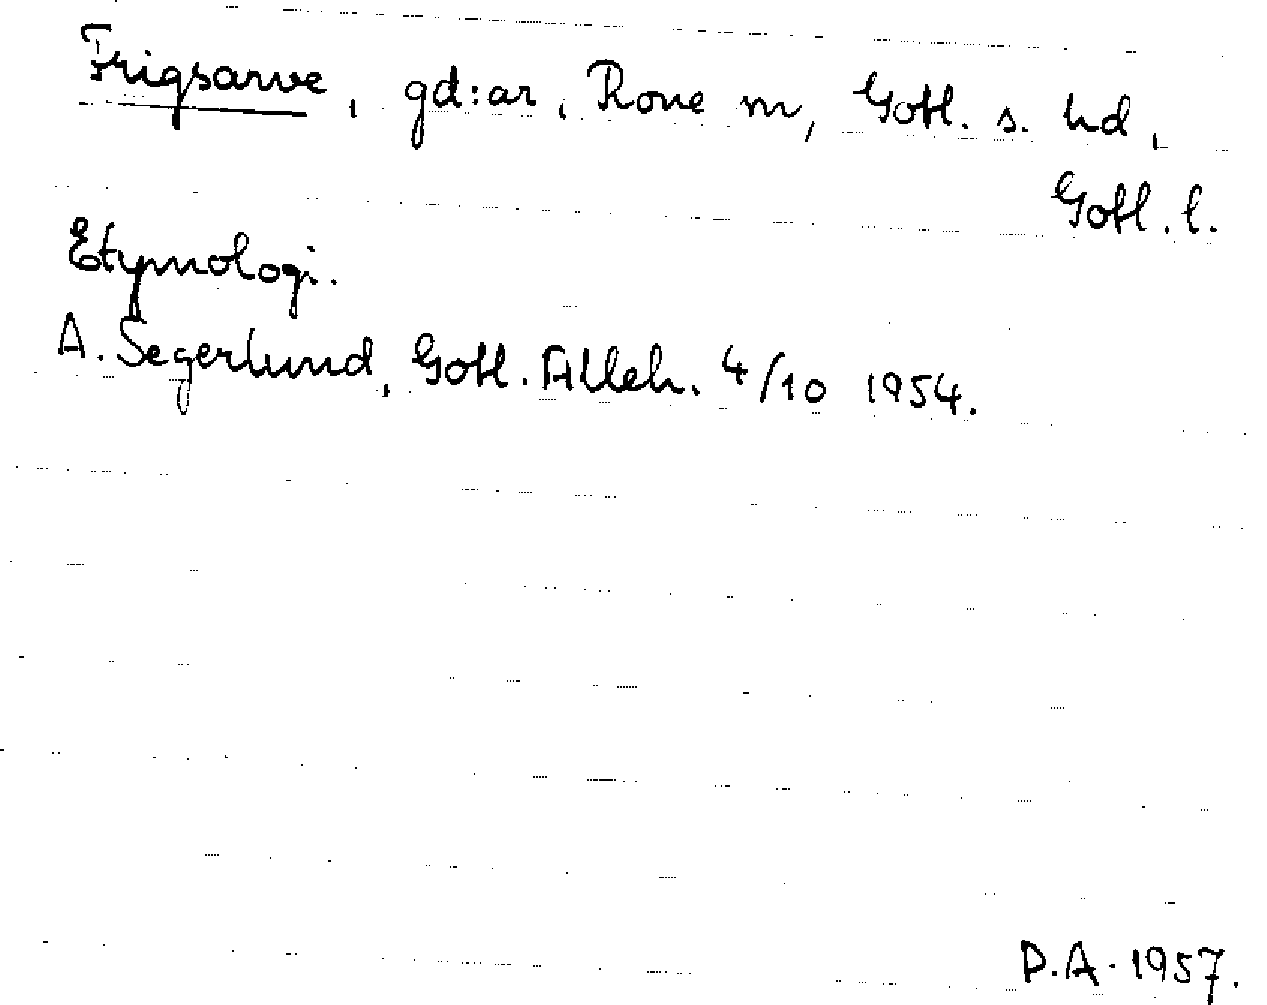 Frigsarve, gd:ar, Rone sn, Gotl. s. hd,
Gotl. l.
Etymologi.
A. Segerlund, Gotl. Alleh. 4/10 1954.
P.A. 1957.